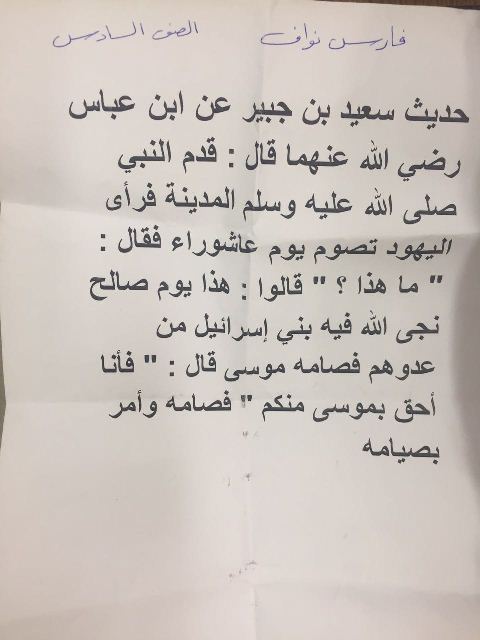 فارس نواف الصف السادس
حديث سعيد بن جبير عن ابن عباس
رضي الله عنهما قال : قدم النبي
صلى الله عليه وسلم المدينة فرأى
اليهود تصوم يوم عاشوراء فقال :
" ما هذا ؟ " قالوا : هذا يوم صالح
نجى الله فيه بني إسرائيل من
عدوهم فصامه موسى قال : " فأنا
أحق بموسى منكم " فصامه وأمر
بصيامه